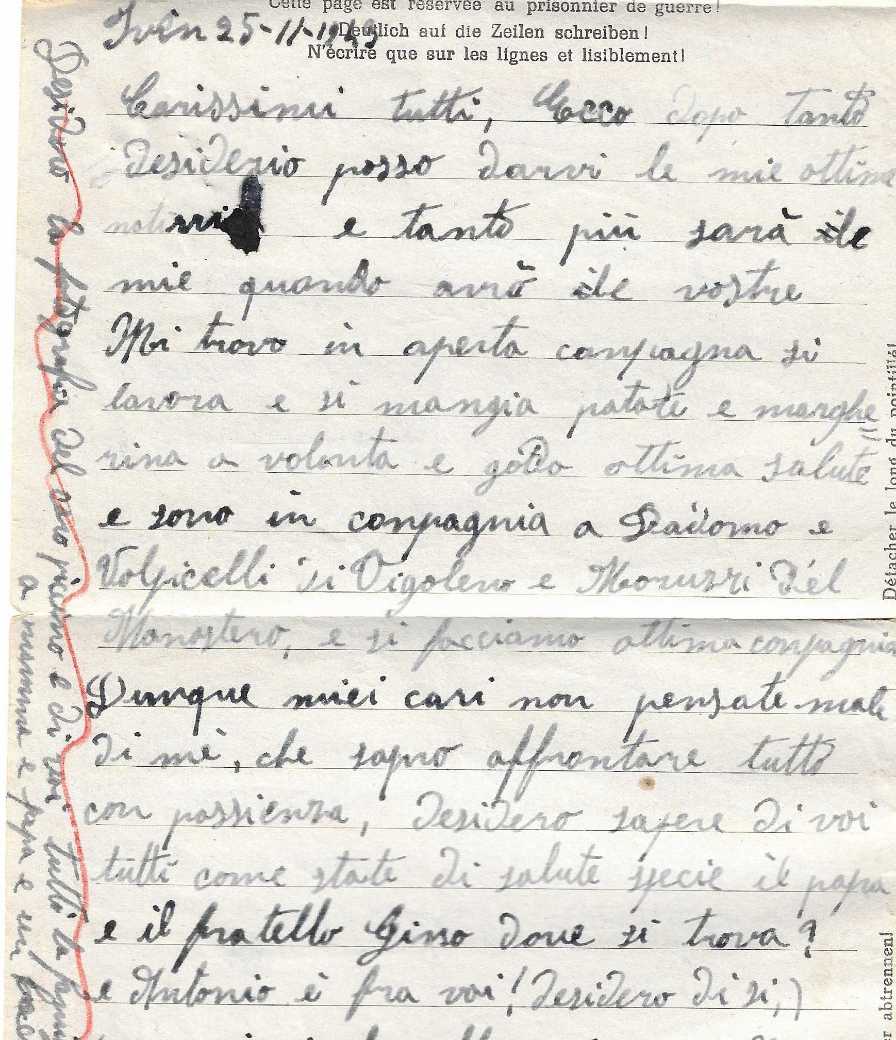 Cette page est réservée au prisonnier de guerre!
25-11-1943
Deutlich auf die Zeilen schreiben!
N'écrire que sur les lignes et lisiblement!
Carissimi tutti, Ecco dopo tanto
desiderio posso darvi le mie ottime
e tanto più sarà le
mie quando avrò le vostre
Mi trovo in aperta campagna si
lavora e si mangia patate e marghe
rina a volonta e godo ottima salute
e sono in conpagnia a Daidomo e
Volpicelli di Vigoleno e Moruzzi del
Monastero, e si facciamo ottima conpagnia
Dunque miei cari non pensate male
di mè, che sapro affrontare tutto
con passienza, desidero sapere di voi
tutti come state di salute specie il papa
e il fratello Gino dove si trova?
e Antonio è fra voi! desidero di si,)
Desidero la fotografia del caro picino e di voi tutti
a mamma e papa e un
Détacher le long du pointillé!
abtrennen!